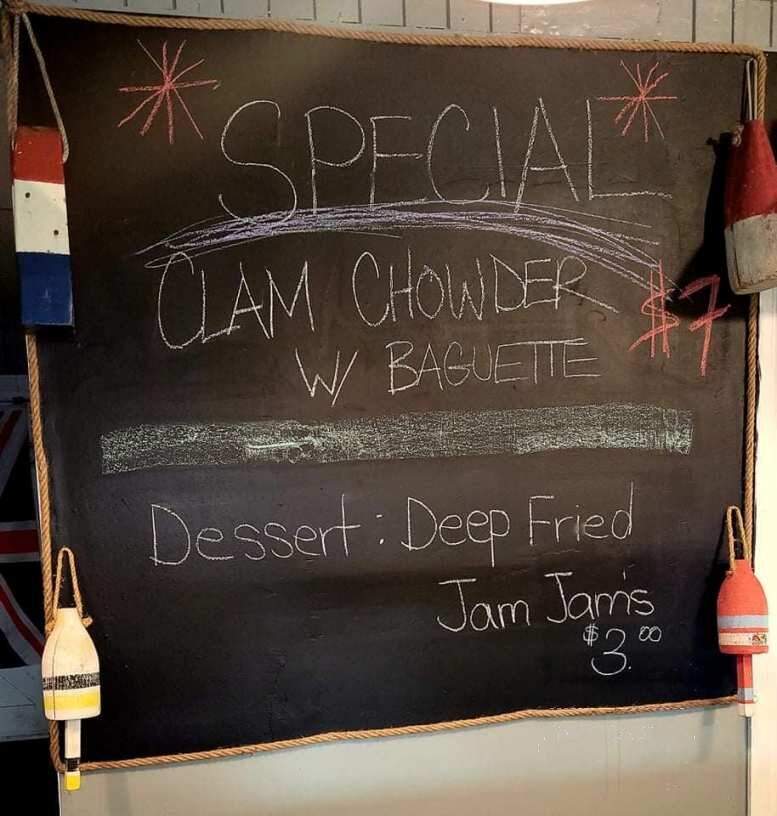 SPECIAL
CLAM CHOWDER $7
W/ BAGUETTE
Dessert: Deep Fried
Jam Jam's
$3.00